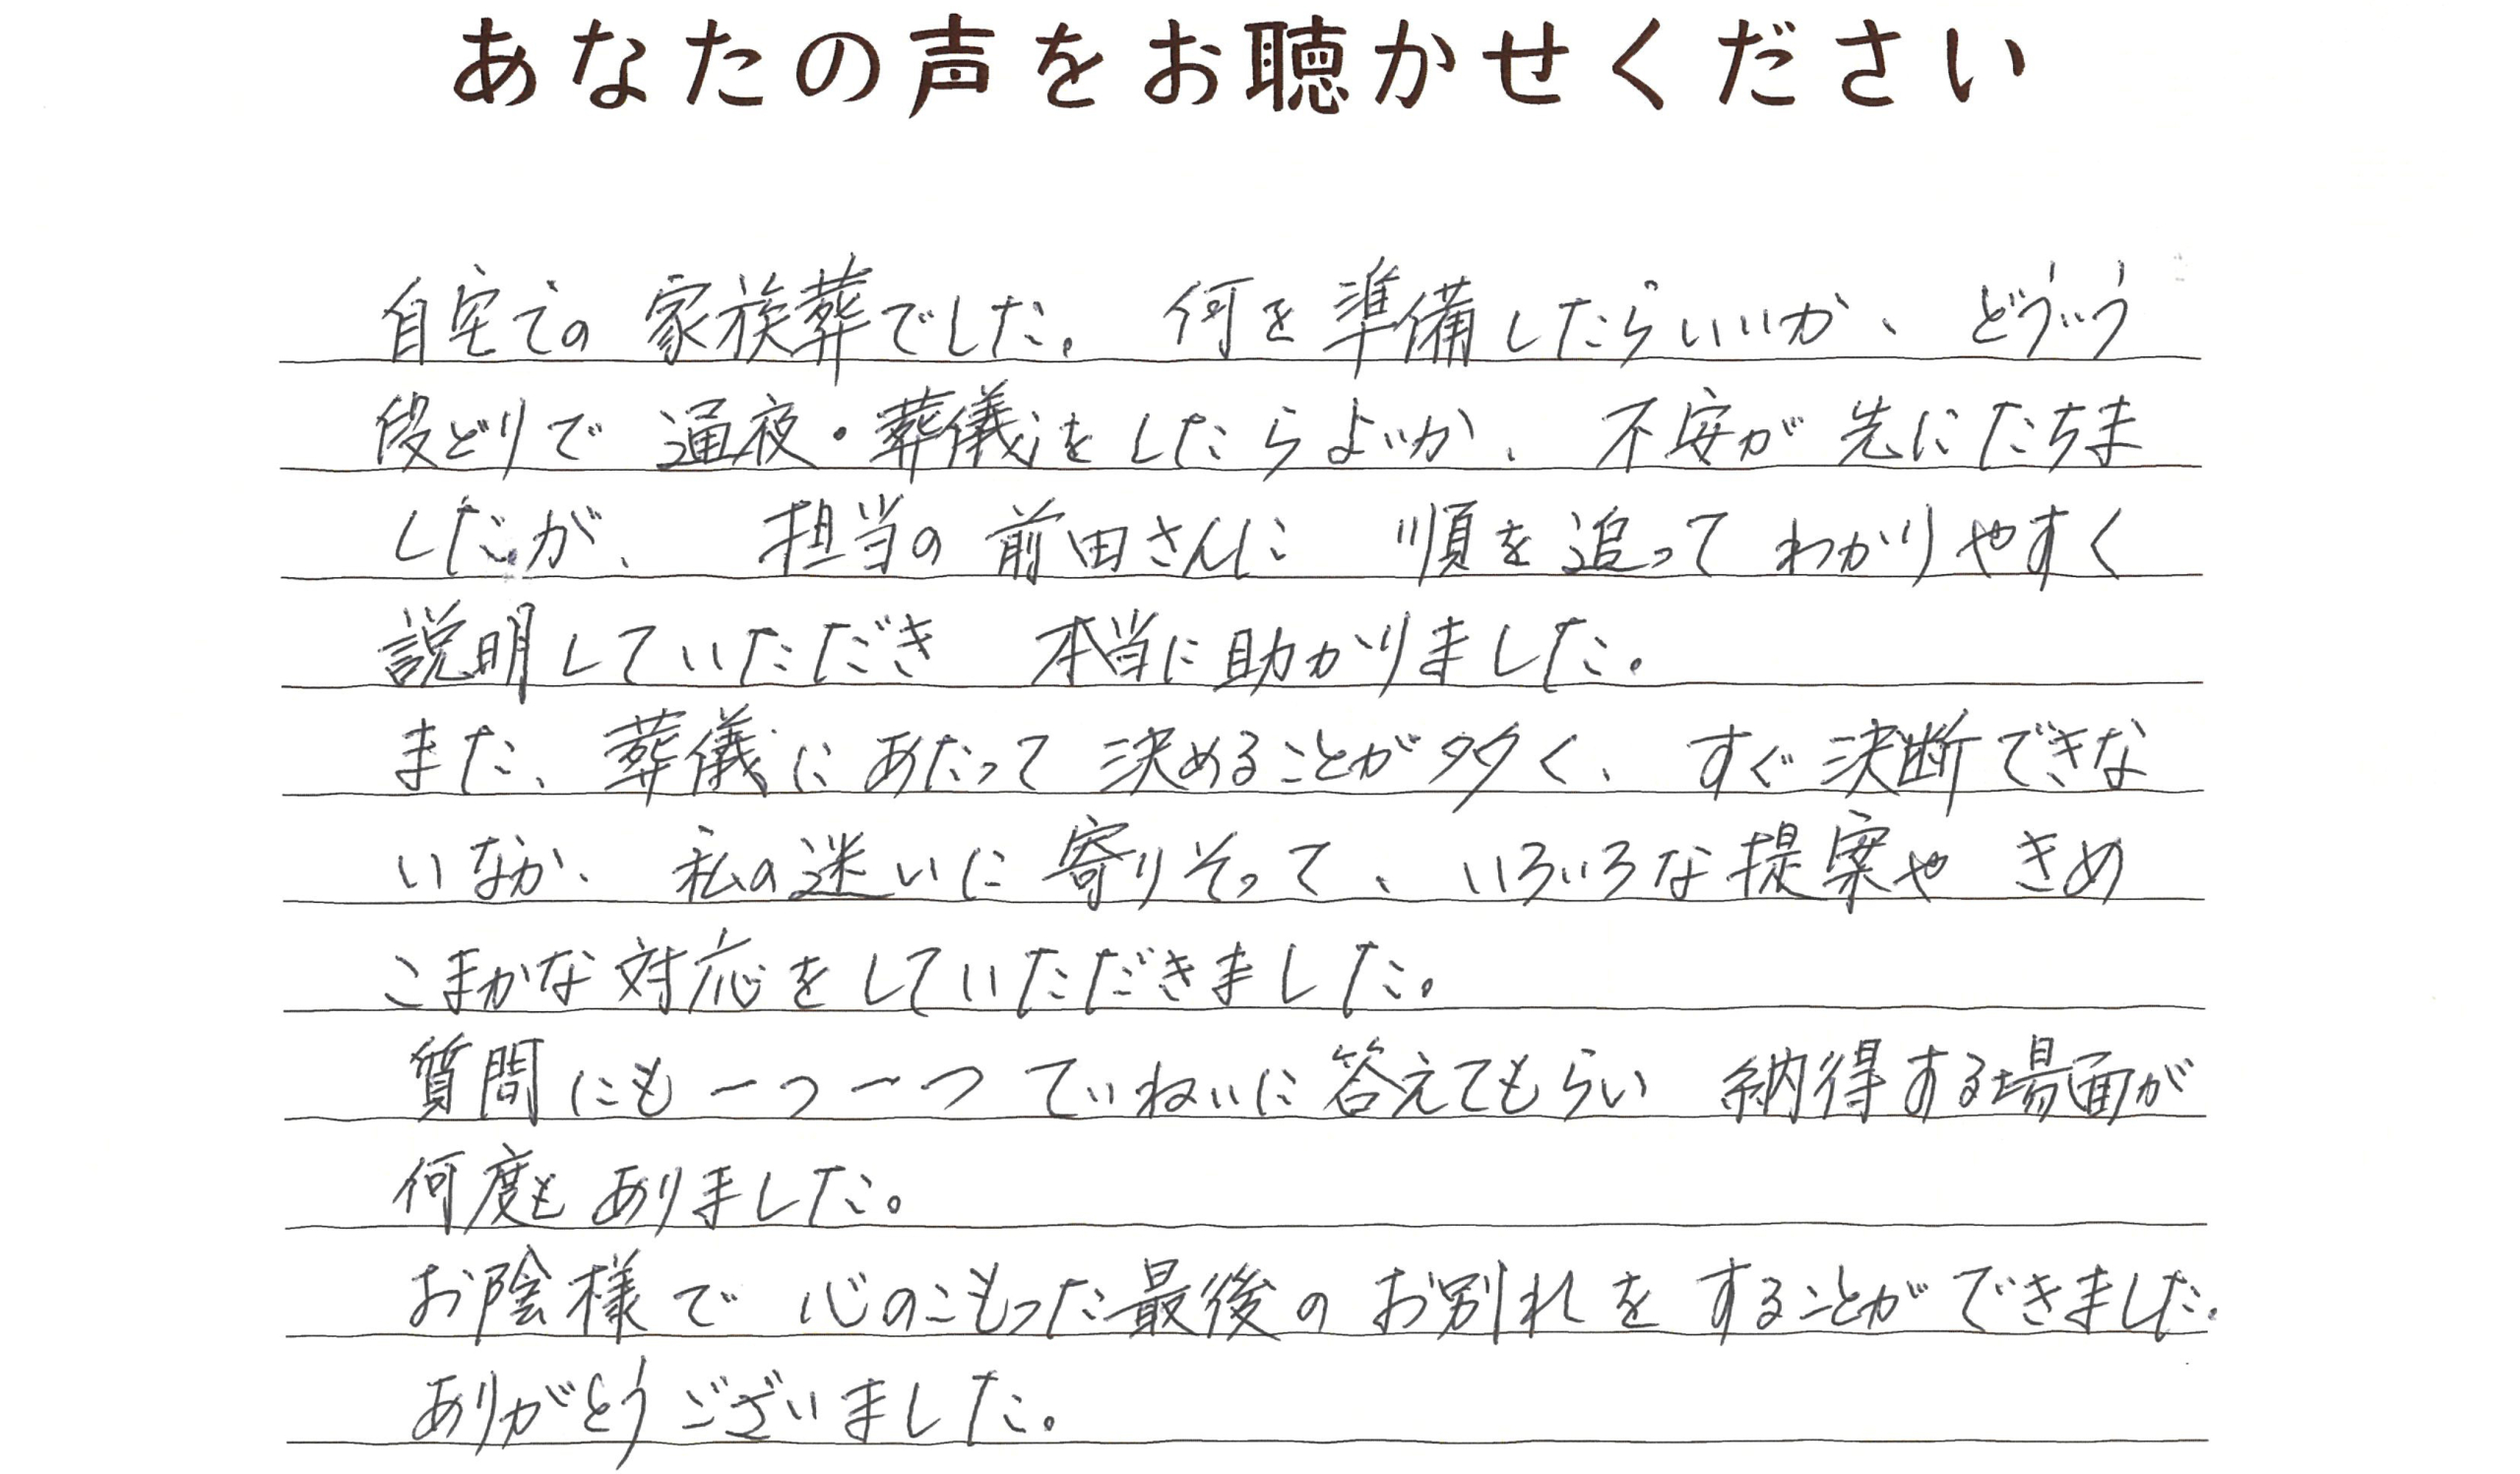 あなたの声をお聴かせください
自宅での家族葬でした。何を準備したらいいか、どういう
段どりで通夜・葬儀をしたらよいか、不安が先にたちま
したが、担当の前田さんに順を追ってわかりやすく
説明していただき 本当に助かりました。
また、葬儀にあたって決めることが多く、すぐ決断できな
いなか、私の迷いに寄りそって、いろいろな提案やきめ
こまかな対応をしていただきました。
質問にも一つ一つていねいに答えてもらい 納得する場面が
何度もありました。
お陰様で心のこもった最後のお別れをすることができました。
ありがとうございました。